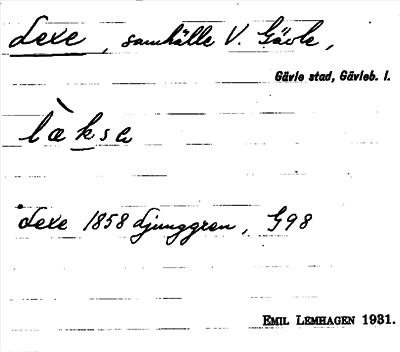 Lexe, samhälle V. Gävle,
Gävle stad, Gävleb. l.
læ̀ksa
Lexe 1858 Ljunggren, G98
EMIL LEMHAGEN 1931.